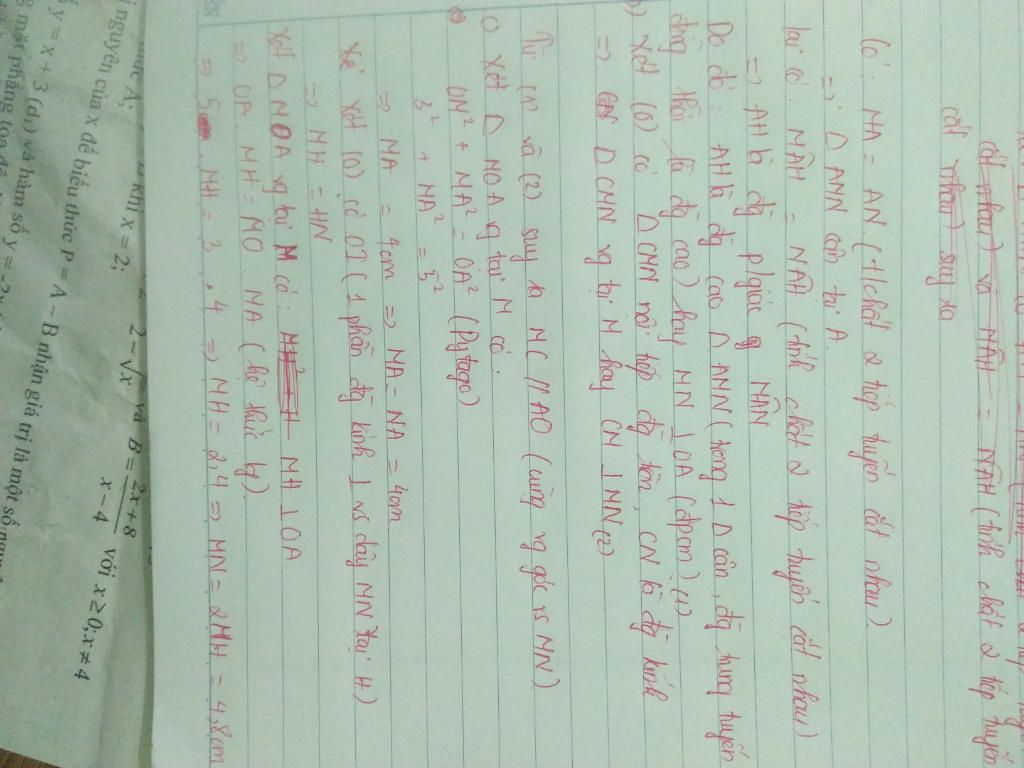 cắt nhau) và MÂH = NÂH (tính chất 2 tiếp tuyến
cắt nhau) suy ra
Có: MA = AN (t/chất 2 tiếp tuyến cắt nhau)
=> Δ AMN cân tại A.
lại có: MÂH = NÂH (tính chất 2 tiếp tuyến cắt nhau)
=> AH là đg p/giác MÂN
Do đó: AH là đg cao Δ AMN (trong 1 Δ cân, đg trung tuyến
đồng thời là đg cao) hay MN ⊥ OA (đpcm) (1)
b) Xét (O) có Δ CMN nội tiếp đg tròn, CN là đg kính
=> Δ CMN vg tại M hay CM ⊥ MN (2)
Từ (1) và (2) suy ra MC // AO (cùng vg góc vs MN)
c) Xét Δ MOA vg tại M có:
OM² + MA² = OA² (Pytago)
3² + MA² = 5²
=> MA = 4cm => MA = NA = 4cm
Xét (O) có OI (1 phần đg kính ⊥ vs dây MN tại H)
=> MH = HN
Xét Δ MOA vg tại M có: MH ⊥ OA
=> OA. MH = MO. MA (hệ thức lg).
=> 5. MH = 3. 4 => MH = 2,4 => MN = 2MH = 4,8cm
khi x = 2;
2 - √x và B = 2x + 8 / x - 4 với x ≥ 0; x ≠ 4
nguyên của x để biểu thức P = A - B nhận giá trị là một số nguyên
y = x + 3 (d₁) và hàm số y =
mặt phẳng tọa độ